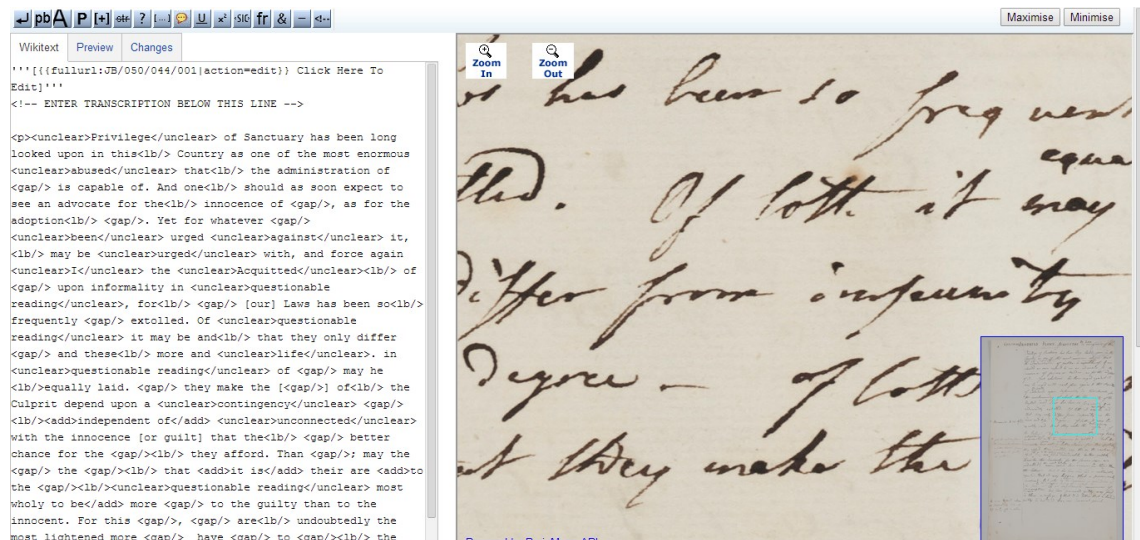 pb A P [+] str ? [...] U x² SIC fr & — <!--
Maximise Minimise
Wikitext Preview Changes
'''[{{fullurl:JB/050/044/001|action=edit}} Click Here To
Edit]'''
<!-- ENTER TRANSCRIPTION BELOW THIS LINE -->
<p><unclear>Privilege</unclear> of Sanctuary has been long
looked upon in this<lb/> Country as one of the most enormous
<unclear>abused</unclear> that<lb/> the administration of
<gap/> is capable of. And one<lb/> should as soon expect to
see an advocate for the<lb/> innocence of <gap/>, as for the
adoption<lb/> <gap/>. Yet for whatever <gap/>
<unclear>been</unclear> urged <unclear>against</unclear> it,
<lb/> may be <unclear>urged</unclear> with, and force again
<unclear>I</unclear> the <unclear>Acquitted</unclear><lb/> of
<gap/> upon informality in <unclear>questionable
reading</unclear>, for<lb/> <gap/> [our] Laws has been so<lb/>
frequently <gap/> extolled. Of <unclear>questionable
reading</unclear> it may be and<lb/> that they only differ
<gap/> and these<lb/> more and <unclear>life</unclear>. in
<unclear>questionable reading</unclear> of <gap/> may he
<lb/>equally laid. <gap/> they make the [<gap/>] of<lb/> the
Culprit depend upon a <unclear>contingency</unclear> <gap/>
<lb/><add>independent of</add> <unclear>unconnected</unclear>
with the innocence [or guilt] that the<lb/> <gap/> better
chance for the <gap/><lb/> they afford. Than <gap/>; may the
<gap/> the <gap/><lb/> that <add>it is</add> their are <add>to
the <gap/><lb/><unclear>questionable reading</unclear> most
wholy to be</add> more <gap/> to the guilty than to the
innocent. For this <gap/>, <gap/> are<lb/> undoubtedly the
most lightened more <gap/> have <gap/> to <gap/><lb/> the
Zoom In
Zoom Out
has been so frequent
equa
Of both it may
differ from impunity
Degree — of both
they make the